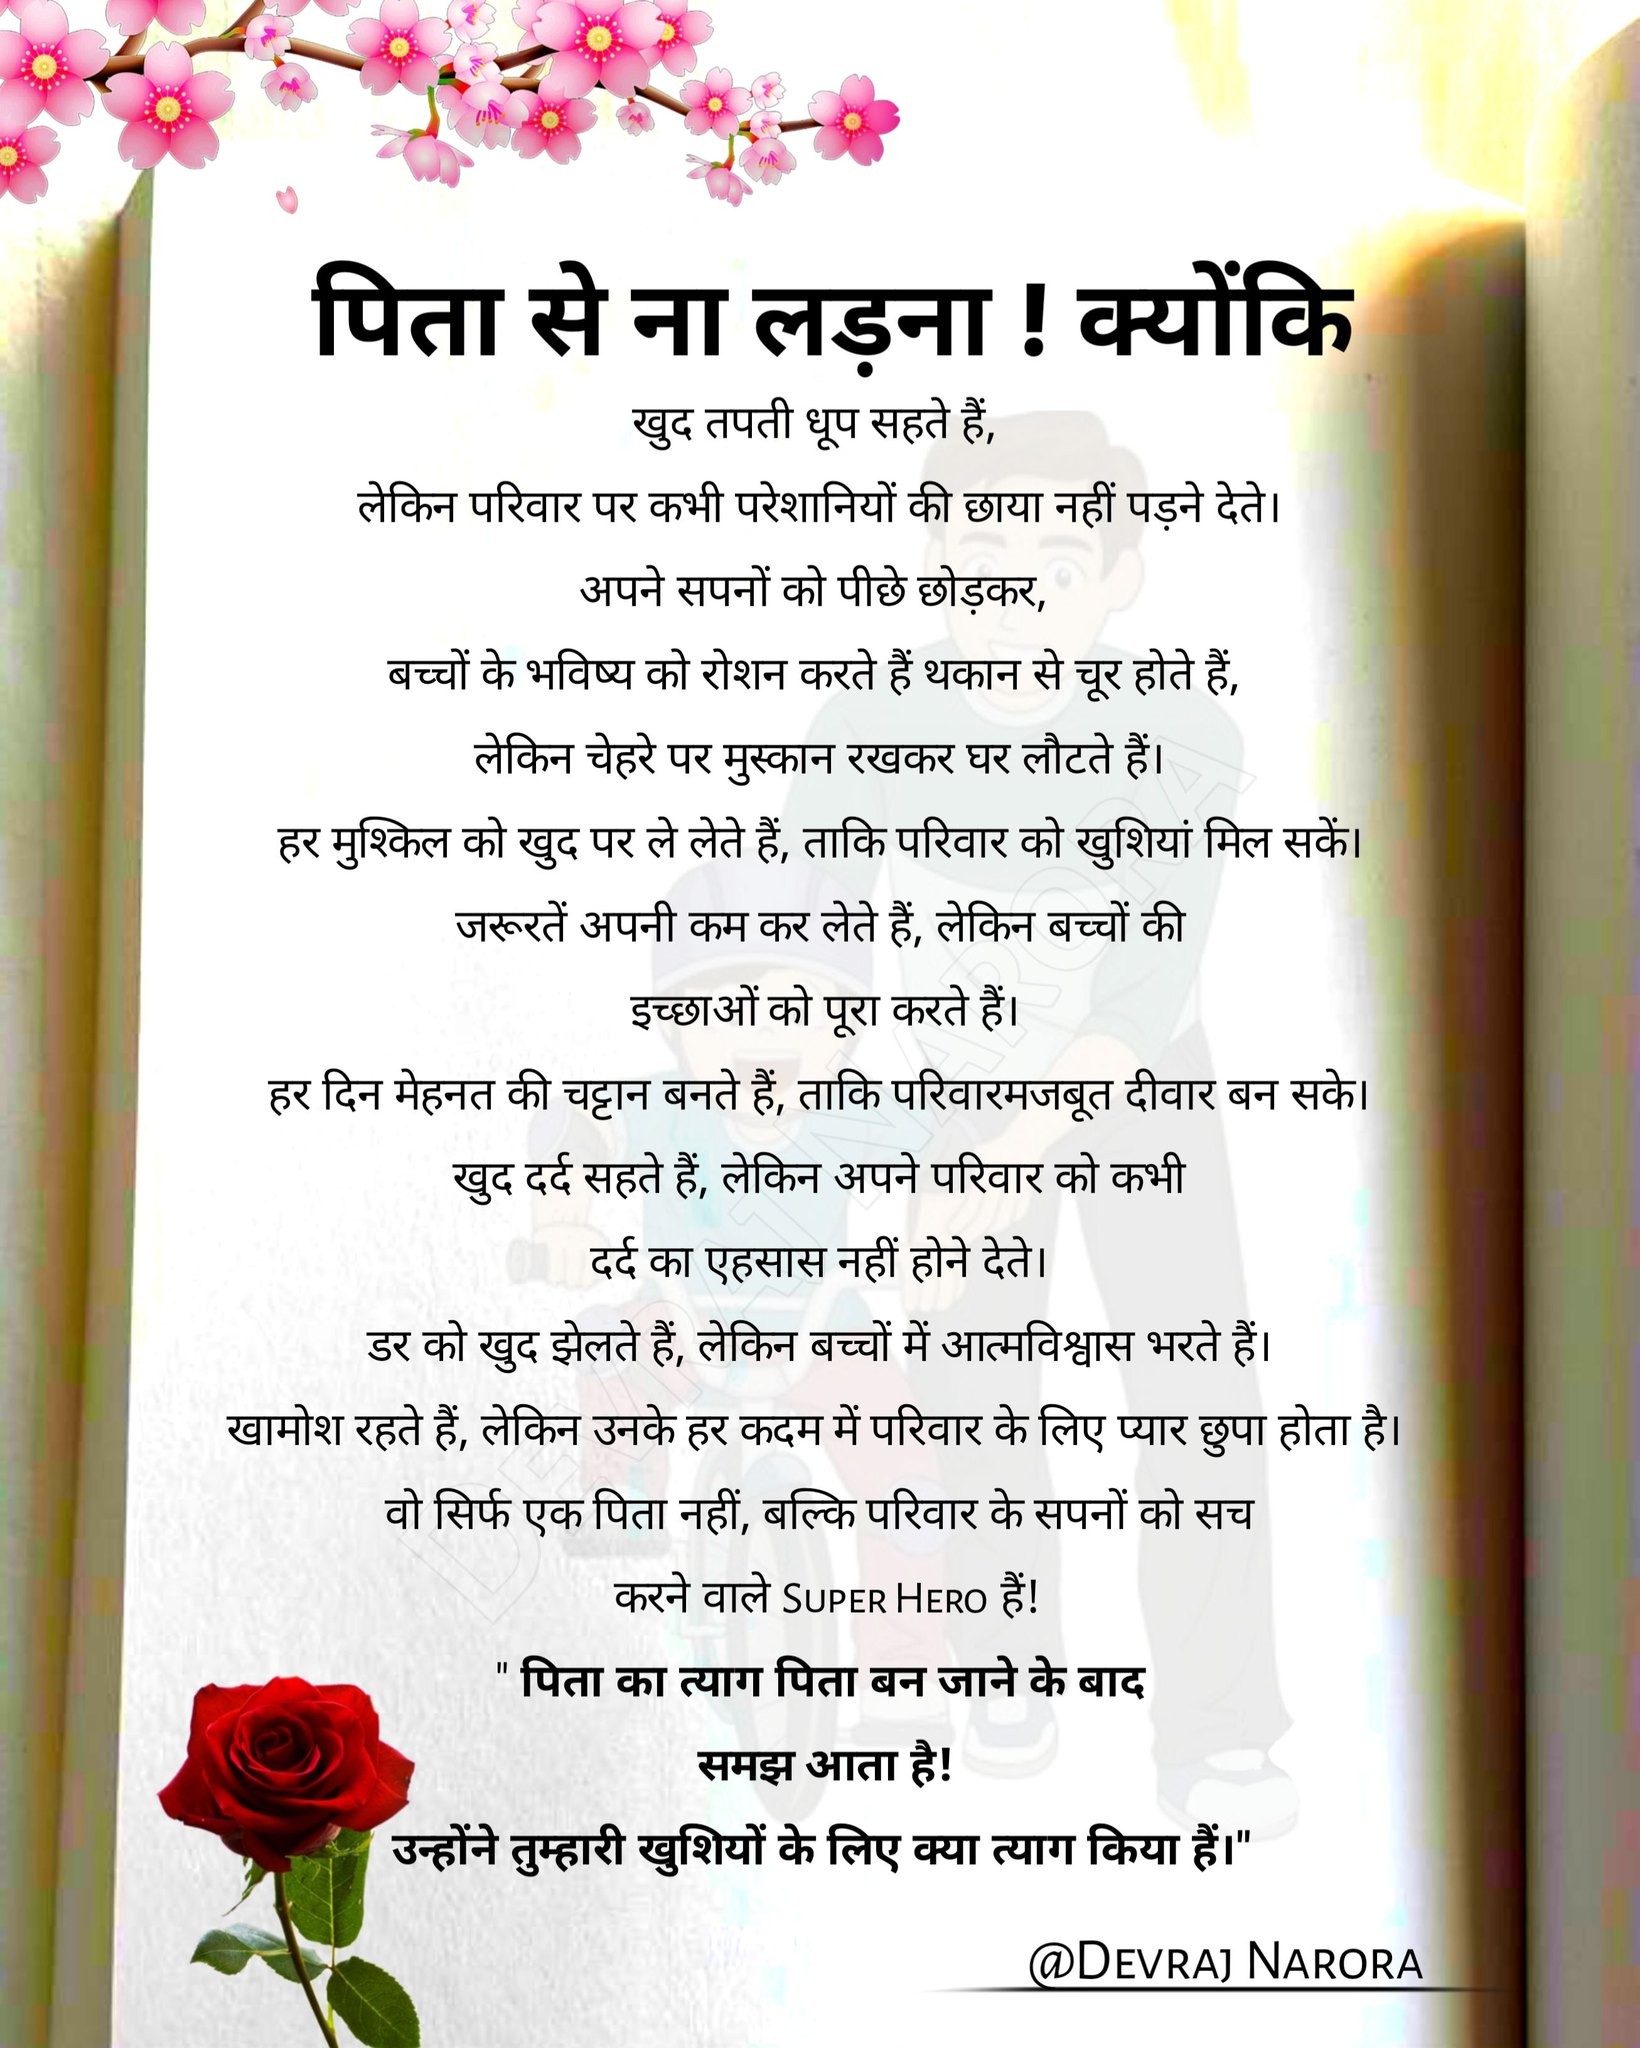 पिता से ना लड़ना ! क्योंकि
खुद तपती धूप सहते हैं,
लेकिन परिवार पर कभी परेशानियों की छाया नहीं पड़ने देते।
अपने सपनों को पीछे छोड़कर,
बच्चों के भविष्य को रोशन करते हैं थकान से चूर होते हैं,
लेकिन चेहरे पर मुस्कान रखकर घर लौटते हैं।
हर मुश्किल को खुद पर ले लेते हैं, ताकि परिवार को खुशियां मिल सकें।
जरूरतें अपनी कम कर लेते हैं, लेकिन बच्चों की
इच्छाओं को पूरा करते हैं।
हर दिन मेहनत की चट्टान बनते हैं, ताकि परिवारमजबूत दीवार बन सके।
खुद दर्द सहते हैं, लेकिन अपने परिवार को कभी
दर्द का एहसास नहीं होने देते।
डर को खुद झेलते हैं, लेकिन बच्चों में आत्मविश्वास भरते हैं।
खामोश रहते हैं, लेकिन उनके हर कदम में परिवार के लिए प्यार छुपा होता है।
वो सिर्फ एक पिता नहीं, बल्कि परिवार के सपनों को सच
करने वाले Super Hero हैं!
" पिता का त्याग पिता बन जाने के बाद
समझ आता है!
उन्होंने तुम्हारी खुशियों के लिए क्या त्याग किया हैं।"
@Devraj Narora
DEVRAJ NARORA